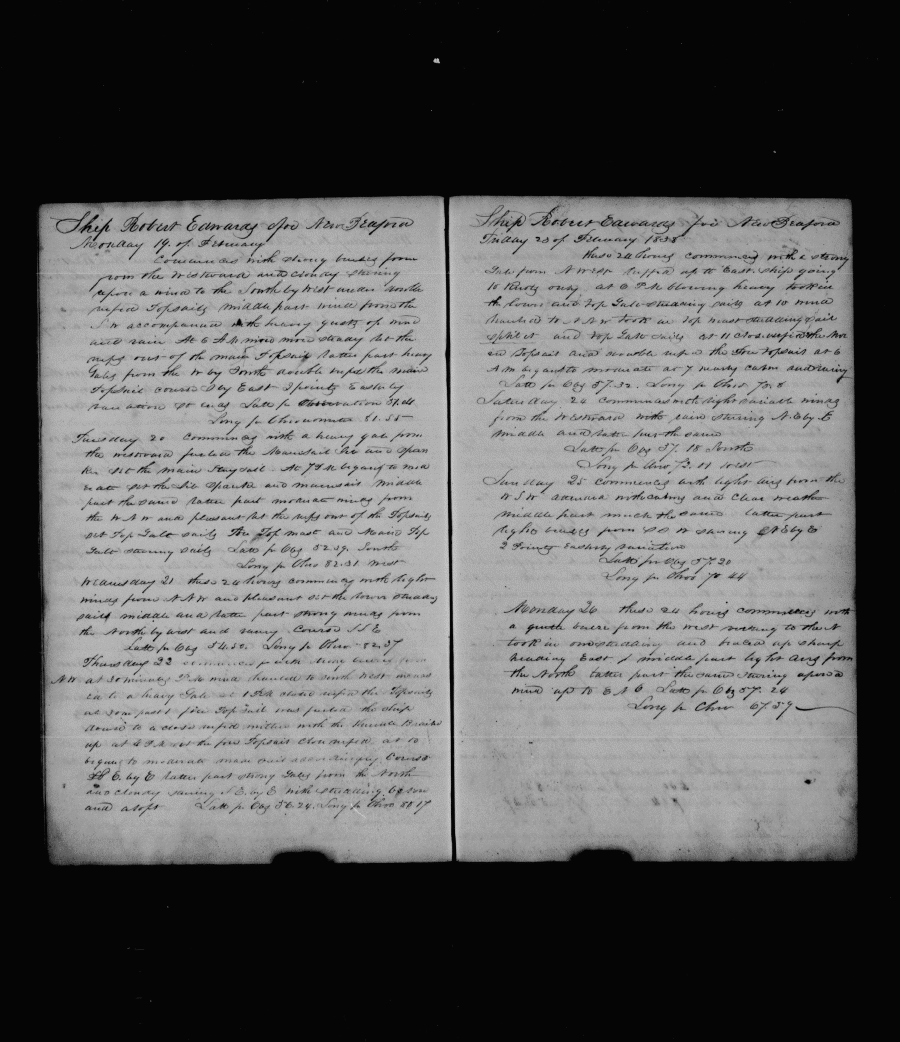 Ship Robert Edwards for New Beaford
Monday 19 of February
Comences with strong breeses from
from the Westward and cloudy stering
upon a wind to the South by West under double
refed Topsails middle part wind from the
S.W accompaned with heavy gusts of wind
and rain At 6 A M more steady let the
refs out of the main Topsail latter part heavy
Gales from the W by South double refed the main
Topsail course S by East 2 points Easterly
variation so ends Latt pr observation 51.41
Long pr Chronometer 81.55
Tuesday 20 commences with a heavy gale from
the westward furled the Mainsail Jib and Span
ker set the main Staysail At 7 P M begun to mod
erate set the Jib Spanker and mainsail middle
part the same latter part moderate winds from
the W N W and plesant let the refs out of the Topsails
set Top Galt sails Fore Top mast and Main Top
Galt steering sails Latt pr Obs 52.39 South
Long pr Chro 82.31 West
Wednesday 21 these 24 hours commences with light
winds from N N W and plesant set the lower studing
sails middle and latter part strong winds from
the North by west and raney Course S S E
Latt pr Obs 54.50 Long pr Chro 82.37
Thursday 22 commences with
at 30 minutes P M wind hauled to south West
a heavy Gale at 1 P M close refed the Topsails
at 30 m past fore Top sail was furled the ship
under a close refed with the
up at 4 P M set the fore Topsail Close refed at 10
begun to moderate made sail accordingly Course
E. by E latter part strong Gales from the North
and cloudy stering E by E with studding
and aloft Latt pr Obs 56.24 Long pr Chro 80.17
Ship Robert Edwards for New Beaford
Friday 23 of February 1838
these 24 hours commences with a strong
Gale from N West luffed up to East ship going
10 knots at 6 P M blowing heavy took in
the lower and Top Galt studding sails at 10 wind
hauled to N W took in top mast studding sail
split it and top Galt sails at 11 close refed the
Topsail and double refed the Fore topsail at 6
A M begun to moderate at 7 nearly calm and
Latt pr Obs 57.32. Long pr Chro 73.8
Saturday 24 commences with light variable winds
from the Westward with rain stering N E by E
middle and latter part the same
Latt pr Obs 57.18 South
Long pr Chro 72.11 West
Sunday 25 commences with light airs from the
W S W attended with calms and clear weather
middle part much the same latter part
light breeses from S S W stering N E by E
2 Points Easterly variation
Latt pr Obs 57.20
Long pr Chro 70 44
Monday 26 these 24 hours commences with
a gentle breese from the west to the N
took in studding and braced up sharp
heading East middle part light airs from
the North latter part the same stering upon a
wind up to E N E Latt pr Obs 57. 24
Long pr Chro 67.59